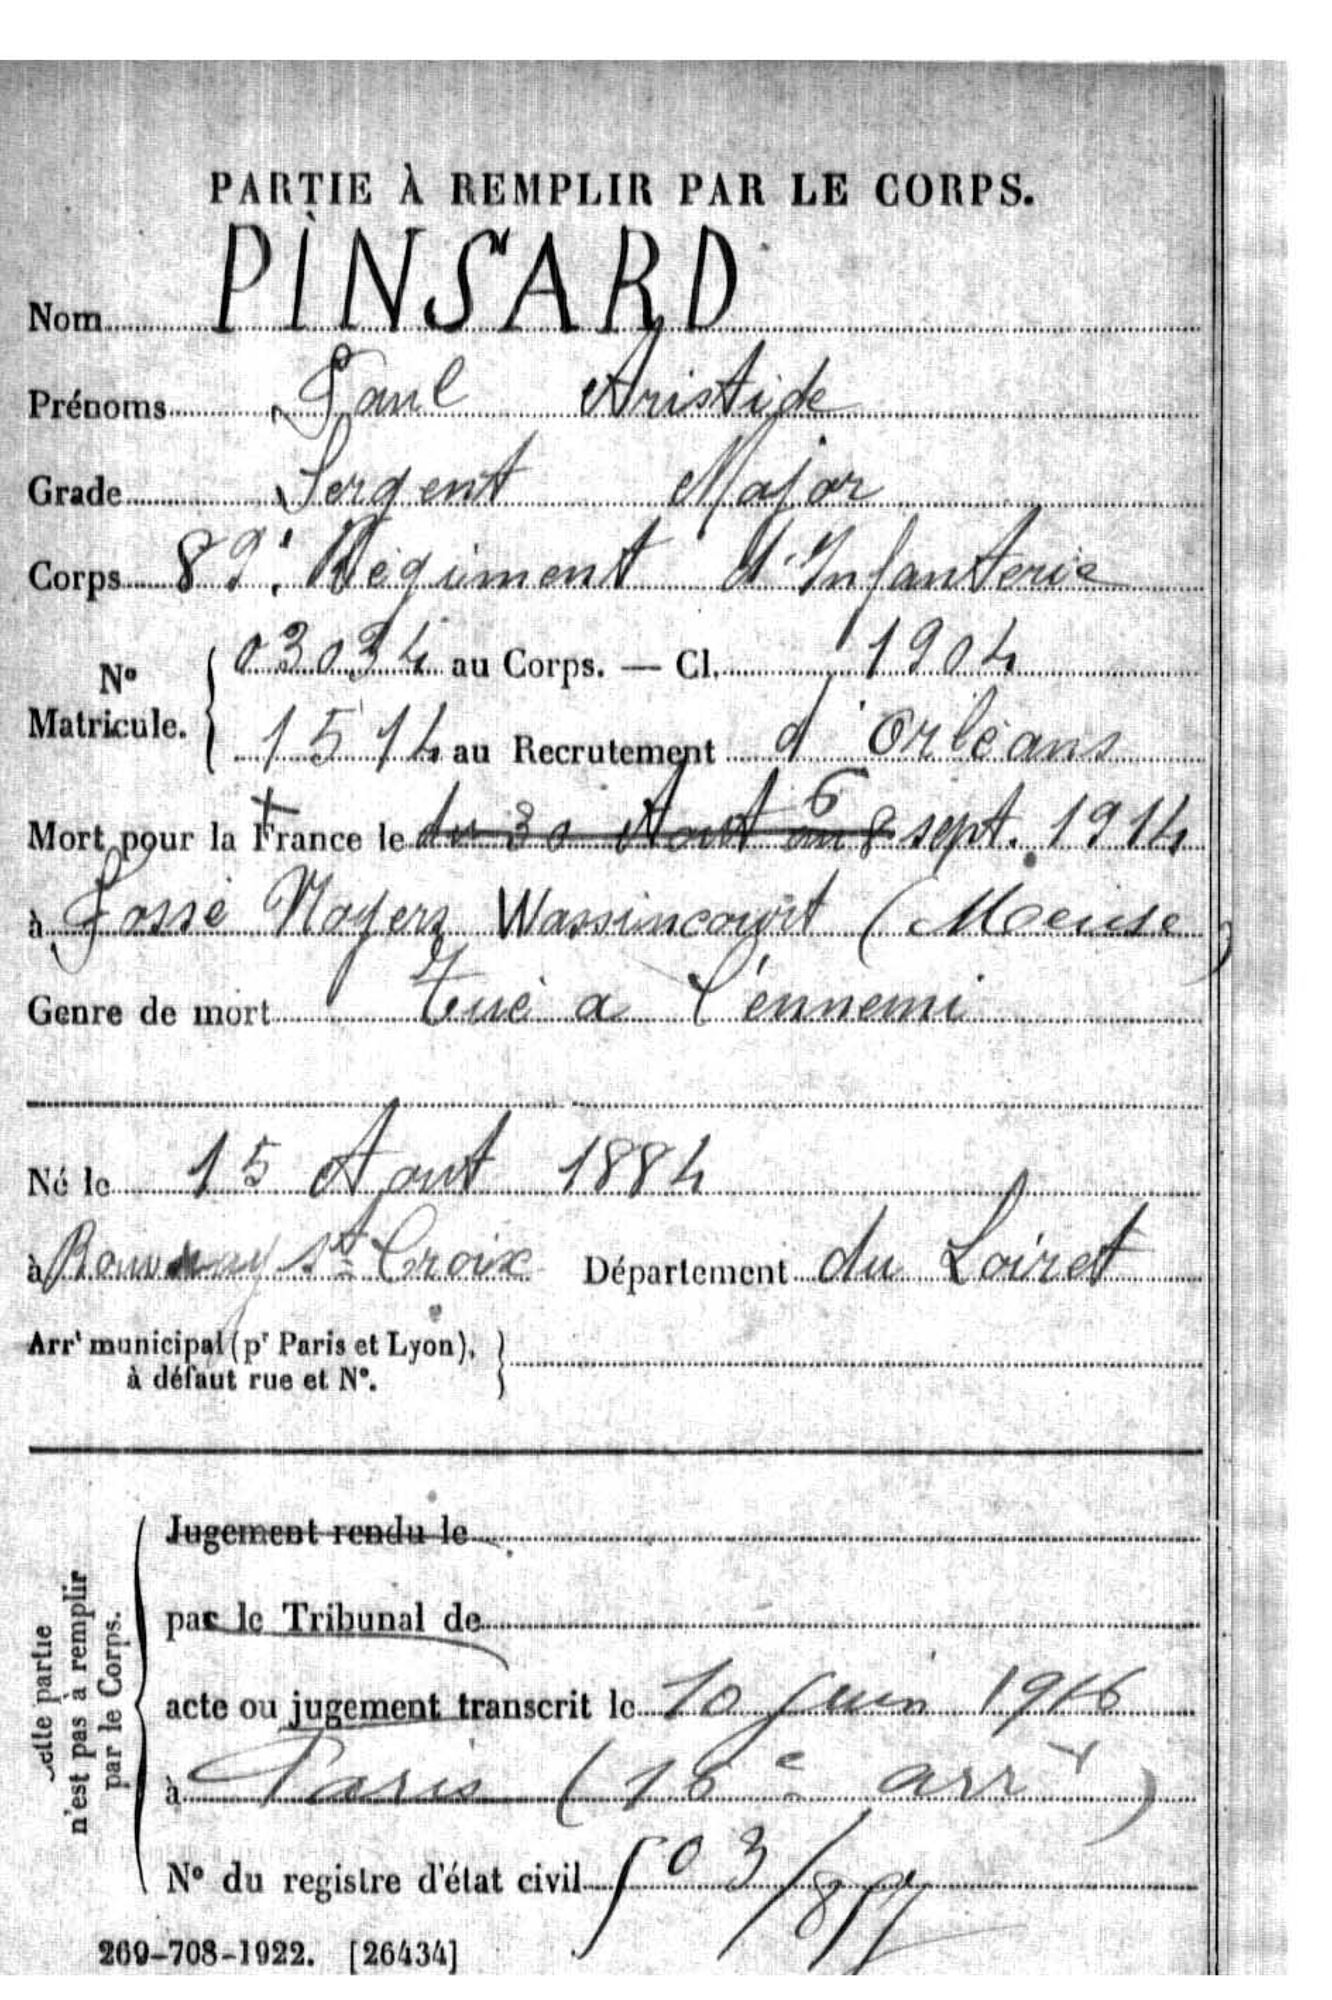 PARTIE À REMPLIR PAR LE CORPS.
Nom PINSARD
Prénoms Paul Aristide
Grade Sergent Major
Corps 89e Régiment d'Infanterie
No Matricule. { 03034 au Corps. — Cl. 1904
1514 au Recrutement d'Orléans
Mort pour la France le du 30 Aout au 8 6 sept. 1914
à Fosse Noyers Wassincourt (Meuse)
Genre de mort Tué a l'énnemi
Né le 15 Aout 1884
à St Croix Département du Loiret
Arrt municipal (pr Paris et Lyon),
à défaut rue et No.
Cette partie
n'est pas à remplir
par le Corps.
Jugement rendu le
par le Tribunal de
acte ou jugement transcrit le 10 Juin 1916
à Paris (18e arrt)
No du registre d'état civil 503/
269-708-1922. [26434]